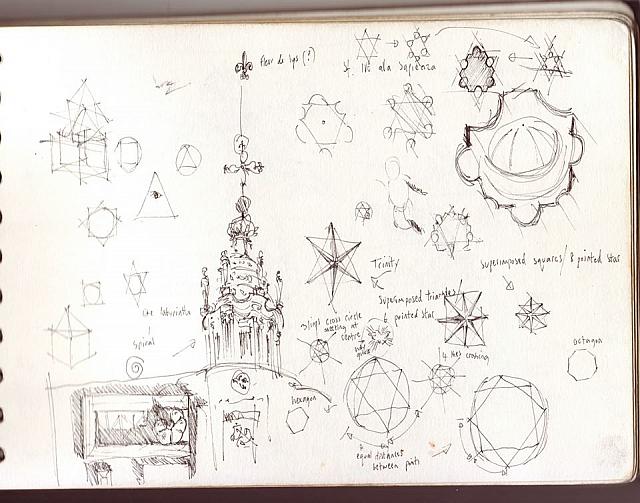 fleur de lys (?)
St. Ivo ala Sapienza
Trinity
superimposed squares / 8 pointed star
superimposed triangles/
6 pointed star
3 lines cross circle
meeting at
centre
4 lines crossing
labyrinth
spiral
hexagon
octagon
equal distances
between points